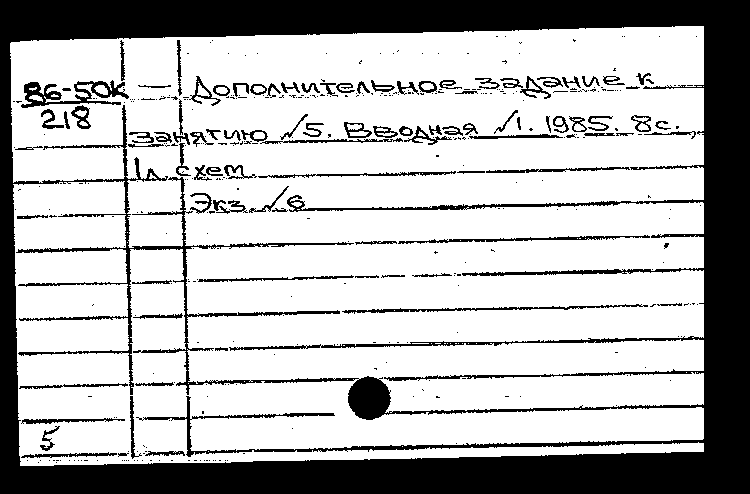 86-50К — Дополнительное задание к
218
занятию №5. Вводная №1. 1985. 8с.,
1л. схем.
Экз. №6
5